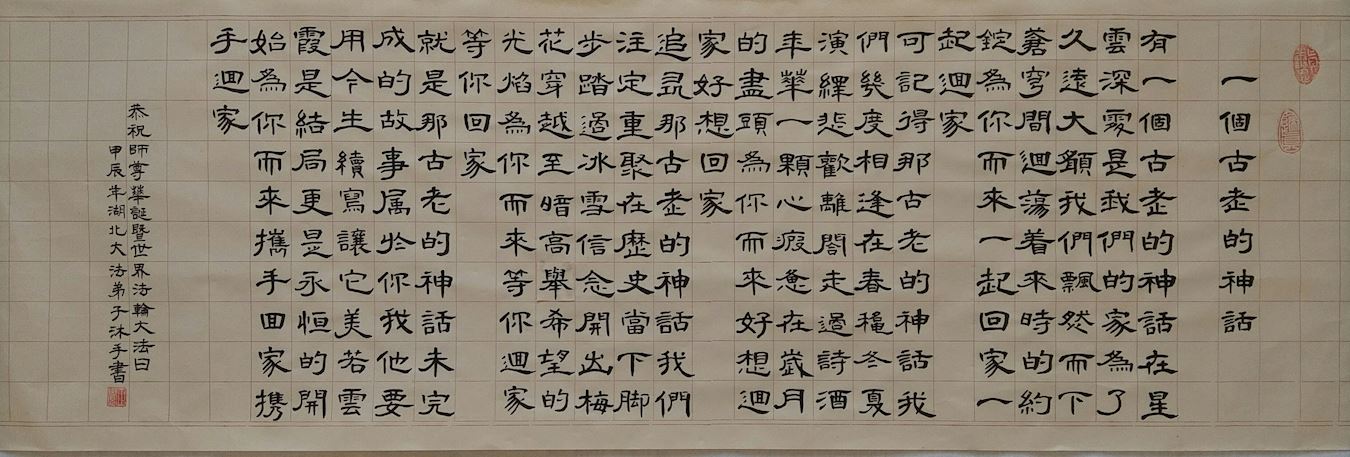 一個古老的神話
有一個古老的神話在星
雲深處是我們的家為了
久遠大願我們飄然而下
蒼穹間迴蕩着來時的約
為你而來一起回家一
起迴家
可記得那古老的神話我
們幾度相逢在春穐冬夏
演繹悲歡離閤走過詩酒
年華一顆心在歲月
的盡頭為你而來好想迴
家好想回家
追尋那古老的神話我們
注定重聚在歷史當下脚
步踏過冰雪信念開出梅
花穿越至暗高舉希望的
光焰為你而來等你迴家
等你回家
就是那古老的神話未完
成的故事属於你我他要
用今生續寫讓它美若雲
霞是結局更是永恒的開
始為你而來攜手回家携
手迴家
恭祝師尊華誕暨世界法輪大法日
甲辰年湖北大法弟子沐手書